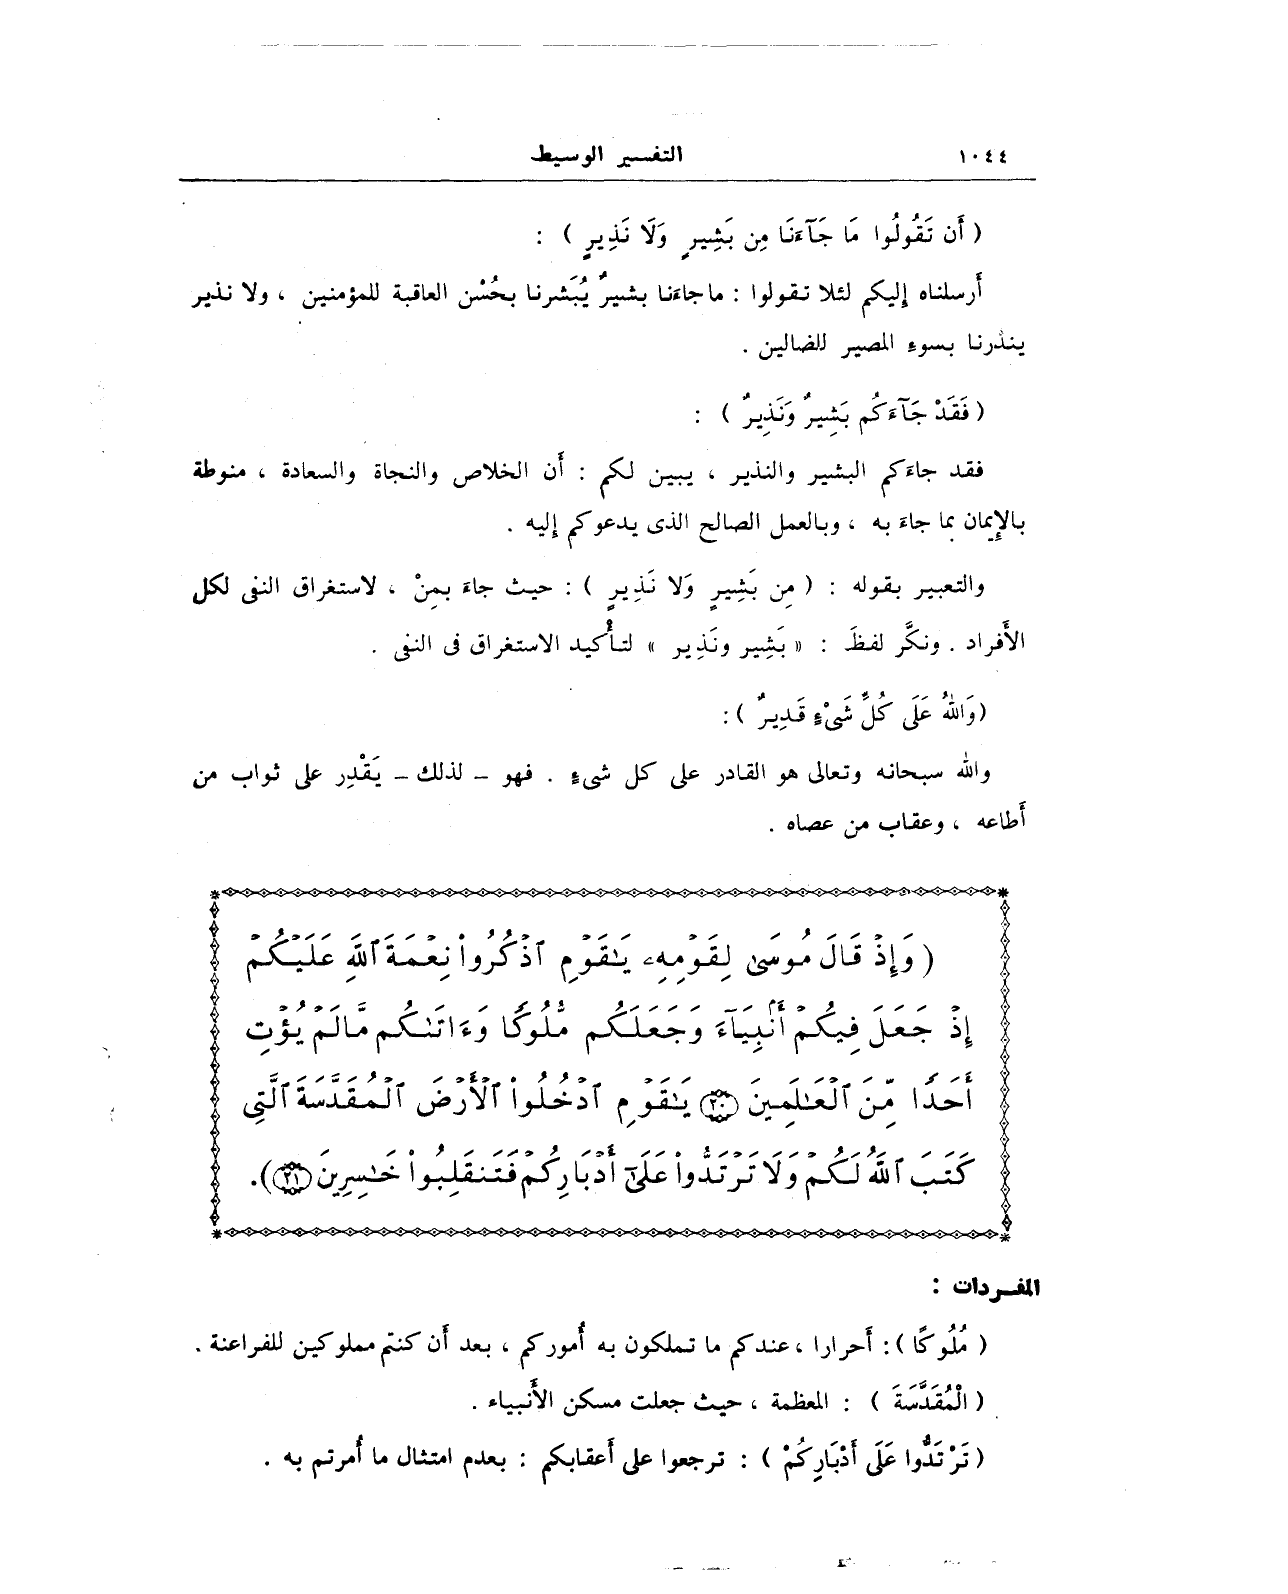 ١٠٤٤ التفسير الوسيط
( أَن تَقُولُوا مَا جَآءَنَا مِن بَشِيرٍ وَلَا نَذِيرٍ ) :
أرسلناه إليكم لئلا تقولوا : ماجاءَنا بشيرٌ يُبَشرنا بحُسْن العاقبة للمؤمنين ، ولا نذير
ينذرنا بسوءِ المصير للضالين .
( فَقَدْ جَآءَكُم بَشِيرٌ وَنَذِيرٌ ) :
فقد جاءَكم البشير والنذير ، يبين لكم : أن الخلاص والنجاة والسعادة ، منوطة
بالإِيمان بما جاءَ به ، وبالعمل الصالح الذى يدعوكم إليه .
والتعبير بقوله : ( مِن بَشِيرٍ وَلا نَذِيرٍ ) : حيث جاءَ بمِنْ ، لاستغراق النفى لكل
الأَفراد . ونكَّر لفظَ : « بَشِير ونَذِير » لتأْكيد الاستغراق فى النفى .
(وَاللهُ عَلَى كُلِّ شَىْءٍ قَدِيرٌ ) :
والله سبحانه وتعالى هو القادر على كل شىءٍ . فهو – لذلك – يَقْدِر على ثواب من
أطاعه ، وعقاب من عصاه .
(وَإِذْ قَالَ مُوسَىٰ لِقَوْمِهِۦ يَٰقَوْمِ ٱذْكُرُوا۟ نِعْمَةَ ٱللَّهِ عَلَيْكُمْ
إِذْ جَعَلَ فِيكُمْ أَنۢبِيَآءَ وَجَعَلَكُم مُّلُوكًا وَءَاتَىٰكُم مَّا لَمْ يُؤْتِ
أَحَدًا مِّنَ ٱلْعَٰلَمِينَ ٢٠ يَٰقَوْمِ ٱدْخُلُوا۟ ٱلْأَرْضَ ٱلْمُقَدَّسَةَ ٱلَّتِى
كَتَبَ ٱللَّهُ لَكُمْ وَلَا تَرْتَدُّوا۟ عَلَىٰٓ أَدْبَارِكُمْ فَتَنقَلِبُوا۟ خَٰسِرِينَ ٢١).
المفـردات :
( مُلُوكًا ) : أحرارا ، عندكم ما تملكون به أُموركم ، بعد أَن كنتم مملوكين للفراعنة .
( الْمُقَدَّسَةَ ) : المعظمة ، حيث جعلت مسكن الأَنبياء .
( تَرْتَدُّوا عَلَى أَدْبَارِكُمْ ) : ترجعوا على أَعقابكم : بعدم امتثال ما أُمرتم به .